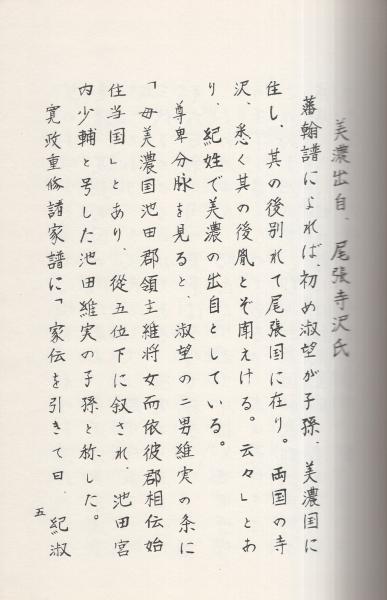 美濃出自、尾張寺沢氏
藩翰譜によれば、初め淑望が子孫、美濃国に
住し、其の後別れて尾張国に在り。両国の寺
沢、悉く其の後胤とぞ聞えける。云々」とあ
り、紀姓で美濃の出自としている。
尊卑分脉を見ると、淑望の二男維実の条に
「母美濃国池田郡領主維将女而依彼郡相伝始
住当国」とあり、従五位下に叙され、池田宮
内少輔と号した池田維実の子孫と称した。
寛政重修諸家譜に「家伝を引きて曰、紀淑
五